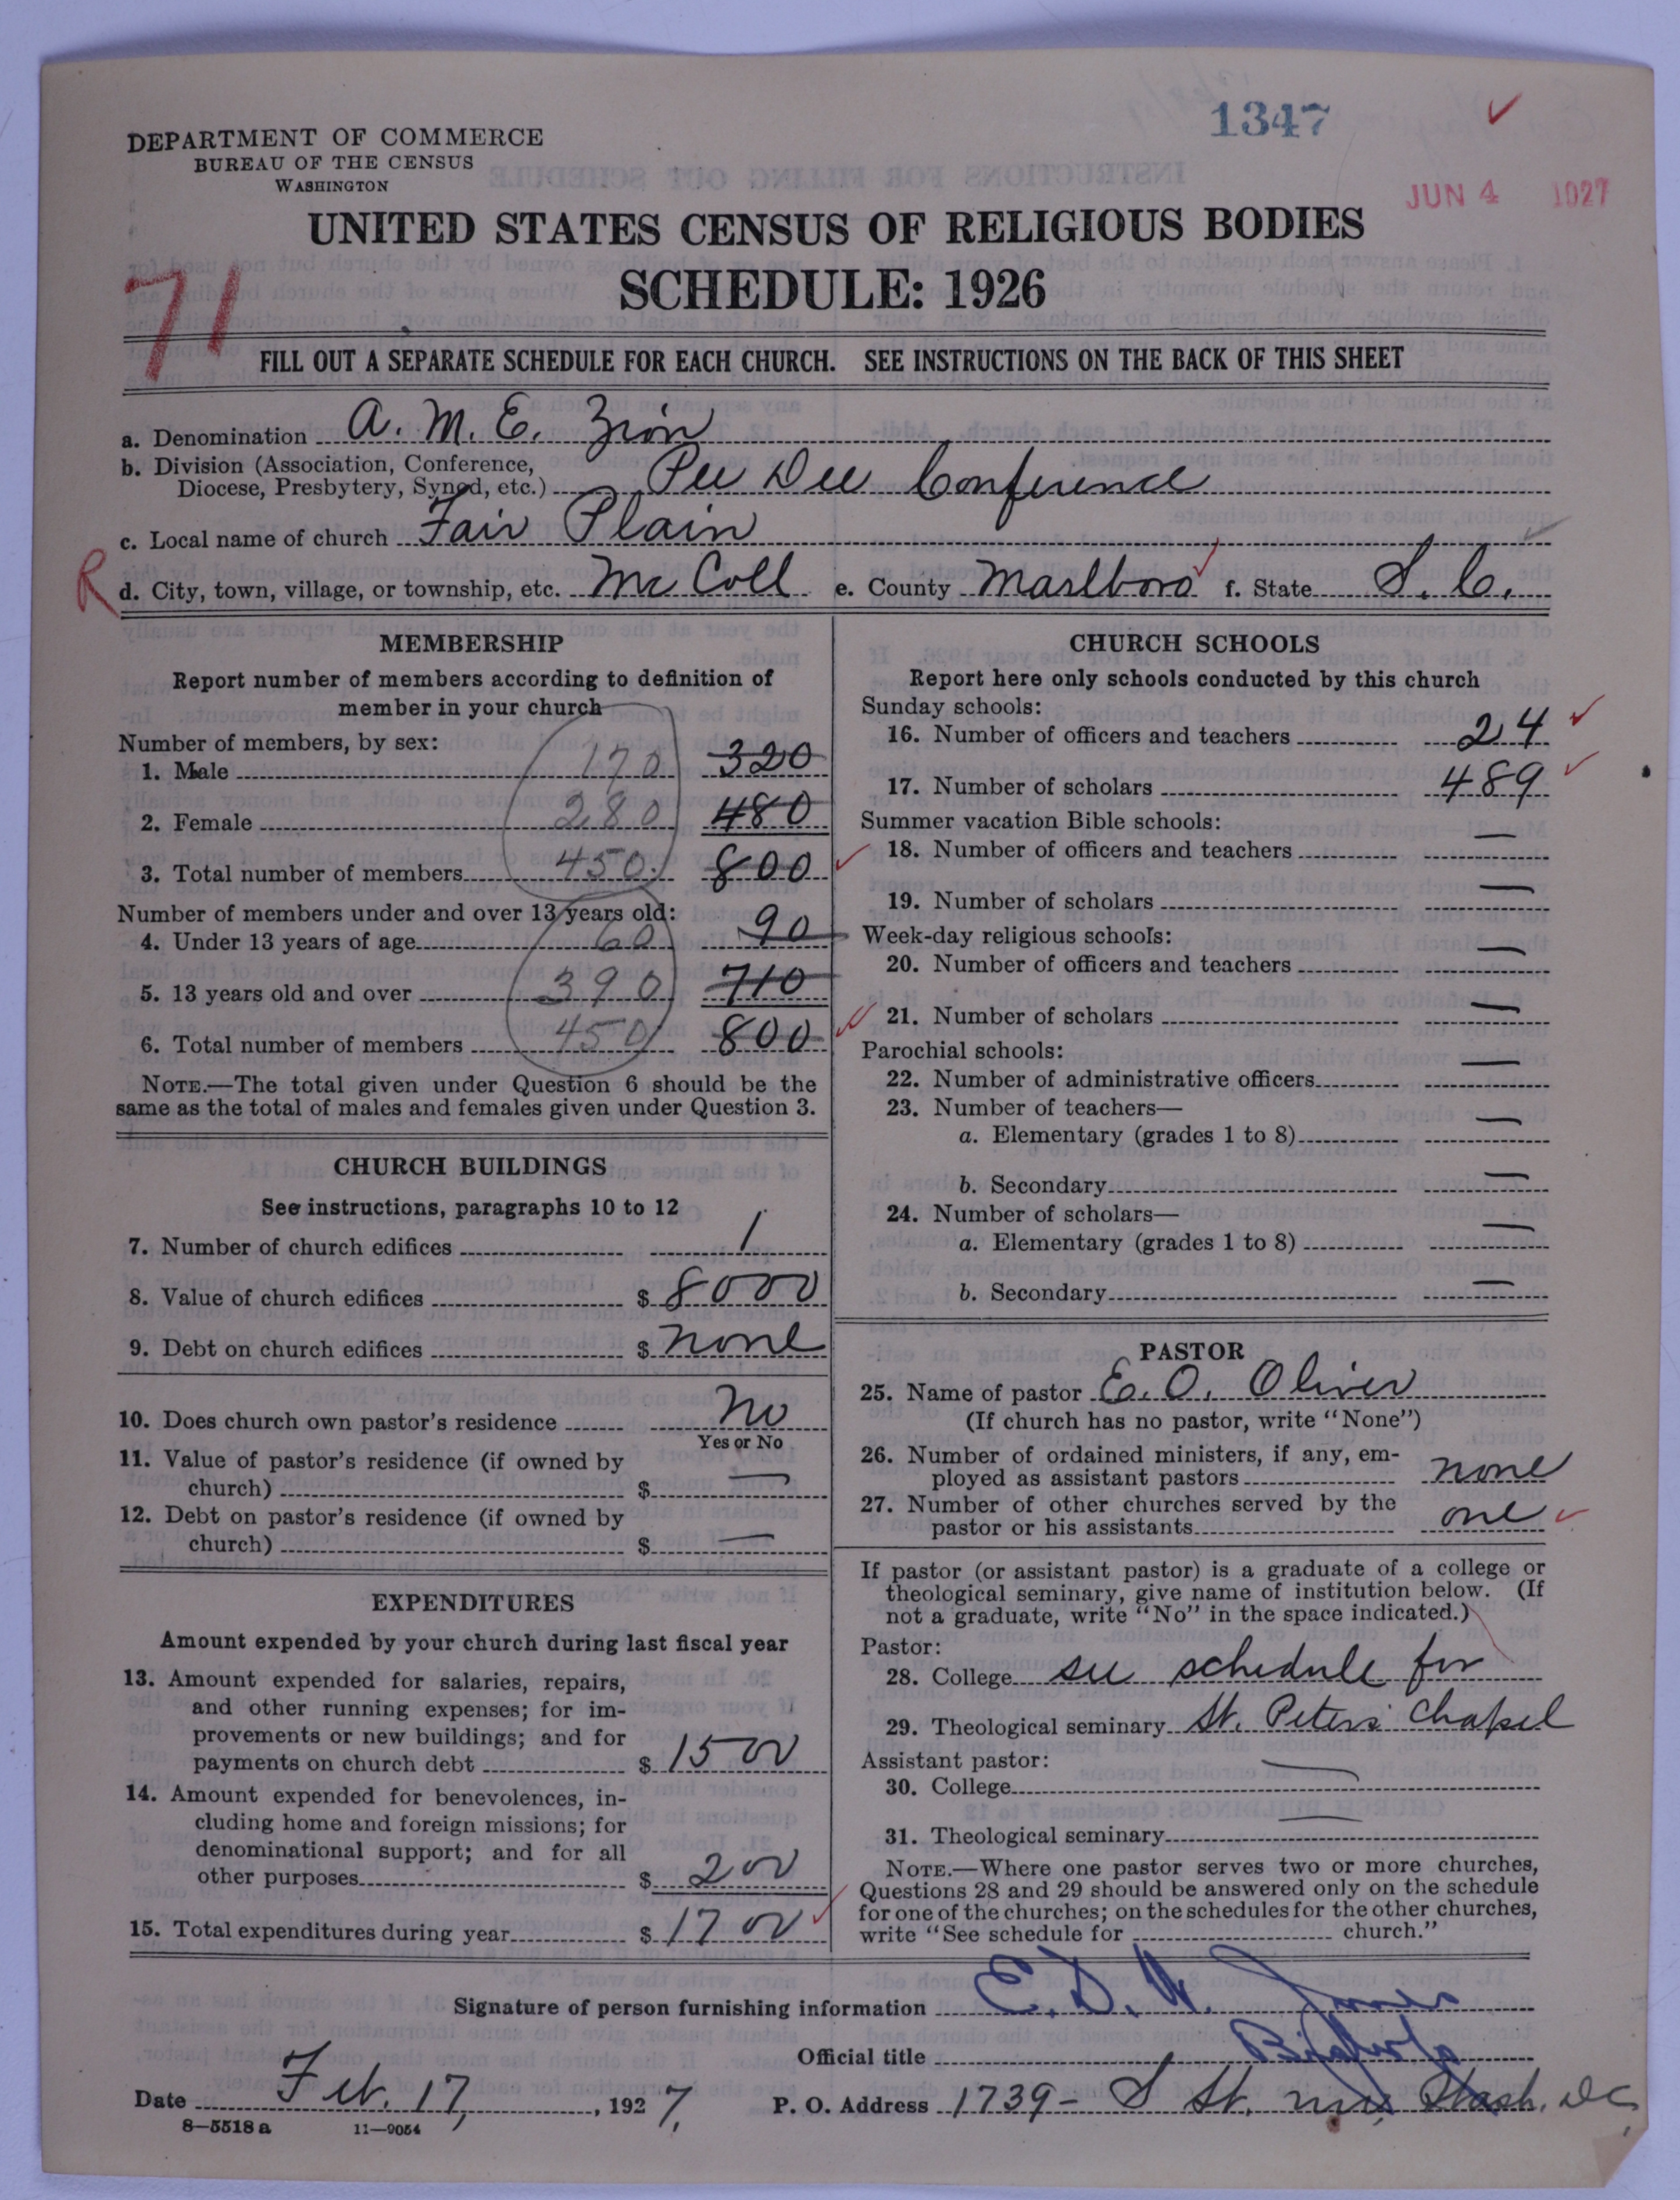 1347
JUN 4 1927
DEPARTMENT OF COMMERCE
BUREAU OF THE CENSUS
WASHINGTON
UNITED STATES CENSUS OF RELIGIOUS BODIES
SCHEDULE: 1926
71
FILL OUT A SEPARATE SCHEDULE FOR EACH CHURCH. SEE INSTRUCTIONS ON THE BACK OF THIS SHEET
a. Denomination A. M. E. Zion
b. Division (Association, Conference,
Diocese, Presbytery, Synod, etc.) Pee Dee Conference
c. Local name of church Fair Plain
R
d. City, town, village, or township, etc. McColl e. County Marlboro f. State S. C.
MEMBERSHIP
Report number of members according to definition of
member in your church
Number of members, by sex:
1. Male 170 320
2. Female 280 480
3. Total number of members 450 800
Number of members under and over 13 years old:
4. Under 13 years of age 60 90
5. 13 years old and over 390 710
6. Total number of members 450 800
NOTE.—The total given under Question 6 should be the
same as the total of males and females given under Question 3.
CHURCH BUILDINGS
See instructions, paragraphs 10 to 12
7. Number of church edifices 1
8. Value of church edifices $ 8000
9. Debt on church edifices $ none
10. Does church own pastor's residence No
Yes or No
11. Value of pastor's residence (if owned by
church) $ —
12. Debt on pastor's residence (if owned by
church) $ —
EXPENDITURES
Amount expended by your church during last fiscal year
13. Amount expended for salaries, repairs,
and other running expenses; for im-
provements or new buildings; and for
payments on church debt $ 1500
14. Amount expended for benevolences, in-
cluding home and foreign missions; for
denominational support; and for all
other purposes $ 200
15. Total expenditures during year $ 1700
CHURCH SCHOOLS
Report here only schools conducted by this church
Sunday schools:
16. Number of officers and teachers 24
17. Number of scholars 489
Summer vacation Bible schools:
18. Number of officers and teachers —
19. Number of scholars —
Week-day religious schools:
20. Number of officers and teachers —
21. Number of scholars —
Parochial schools:
22. Number of administrative officers —
23. Number of teachers—
a. Elementary (grades 1 to 8) —
b. Secondary —
24. Number of scholars—
a. Elementary (grades 1 to 8) —
b. Secondary —
PASTOR
25. Name of pastor E. O. Oliver
(If church has no pastor, write "None")
26. Number of ordained ministers, if any, em-
ployed as assistant pastors none
27. Number of other churches served by the
pastor or his assistants one
If pastor (or assistant pastor) is a graduate of a college or
theological seminary, give name of institution below. (If
not a graduate, write "No" in the space indicated.)
Pastor:
28. College see schedule for
29. Theological seminary St. Peters Chapel
Assistant pastor:
30. College —
31. Theological seminary —
NOTE.—Where one pastor serves two or more churches,
Questions 28 and 29 should be answered only on the schedule
for one of the churches; on the schedules for the other churches,
write "See schedule for church."
Signature of person furnishing information E. D. W. Jones
Official title Bishop
Date Feb. 17, 1927, P. O. Address 1739 - S St. nw, Wash. DC,
8—5518 a 11—9054